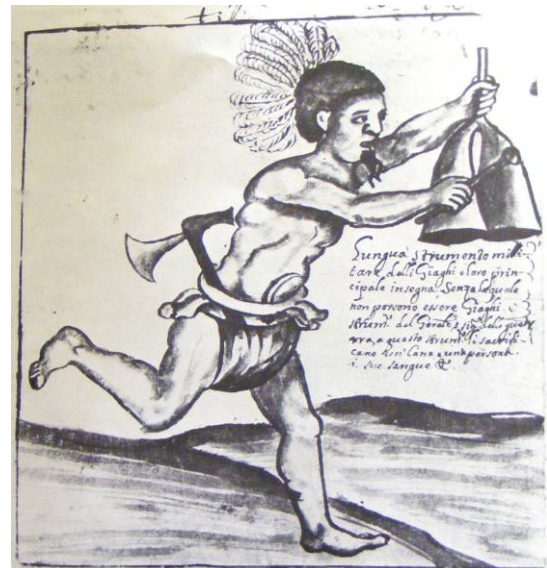 Lungua strumento mili-
tare delli Giaghi e loro prin-
cipale insegna. Senza la quale
non possono essere Giaghi
strum.to del
a questo strum.to si sacrifi-
cano un Cane e una persona
suo sangue